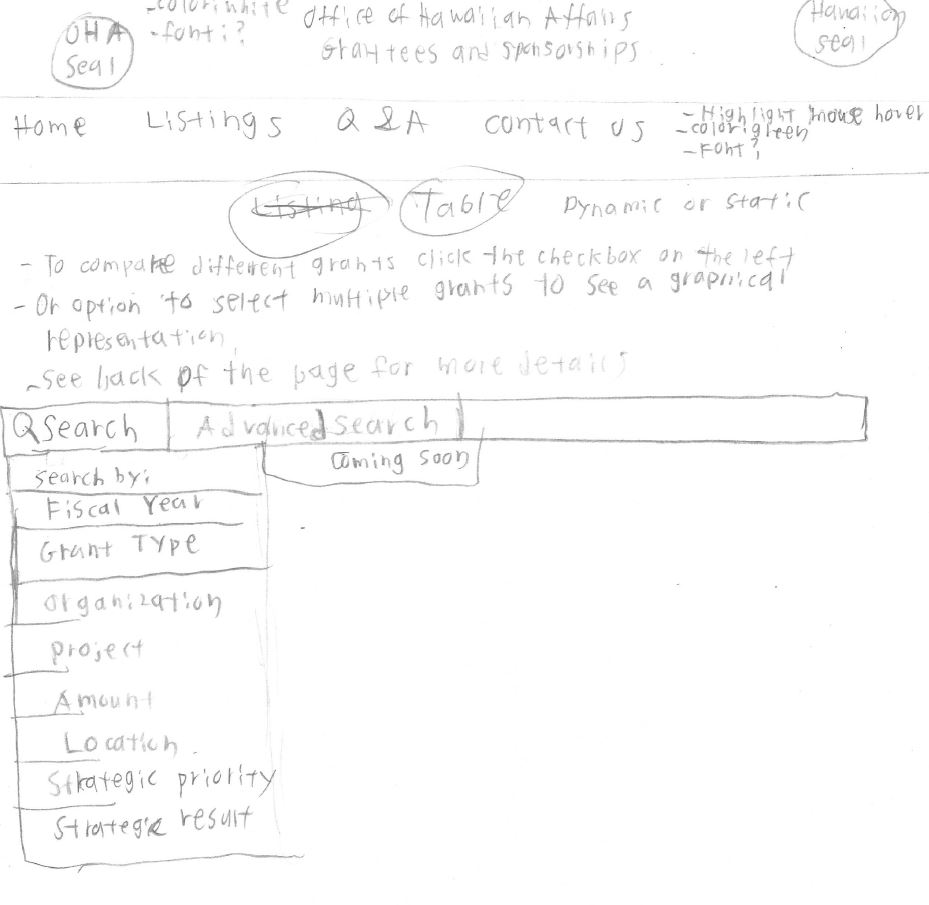 -color:white
OHA
Seal
-font:?
Office of Hawaiian Affairs
Grantees and sponsorships
Hawaiian
seal
Home Listings Q & A contact us
- Highlight mouse hover
-color:green
-Font?
Listing Table Dynamic or static
- To compare different grants click the checkbox on the left
- Or option to select multiple grants to see a graphical
representation
-See back of the page for more details
QSearch Advanced search
Coming soon
search by:
Fiscal Year
Grant Type
Organization
project
Amount
Location
Strategic priority
Strategic result